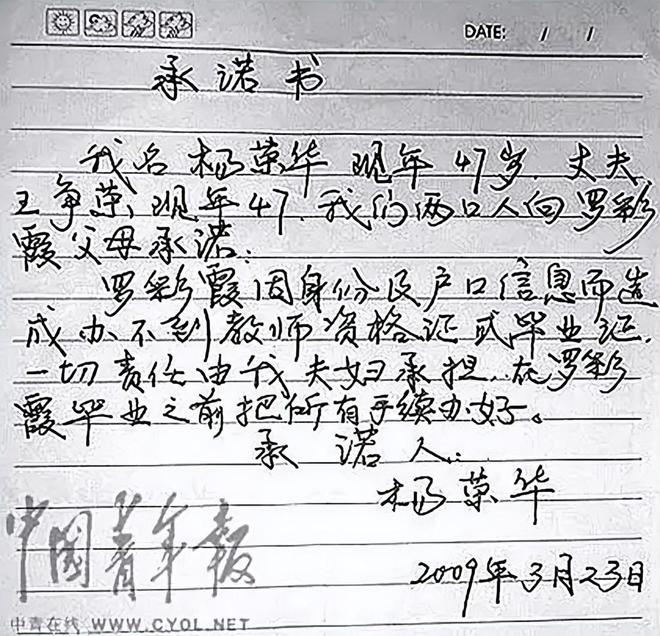 DATE: / /
承诺书
我名杨荣华 现年47岁. 丈夫
王争荣, 现年47. 我们两口人向罗彩
霞父母承诺:
罗彩霞因身份及户口信息而造
成办不到教师资格证或毕业证.
一切责任由我夫妇承担. 在罗彩
霞毕业之前把所有手续办好。
承诺人:
杨荣华
2009年3月23日
中国青年报
中青在线 WWW.CYOL.NET